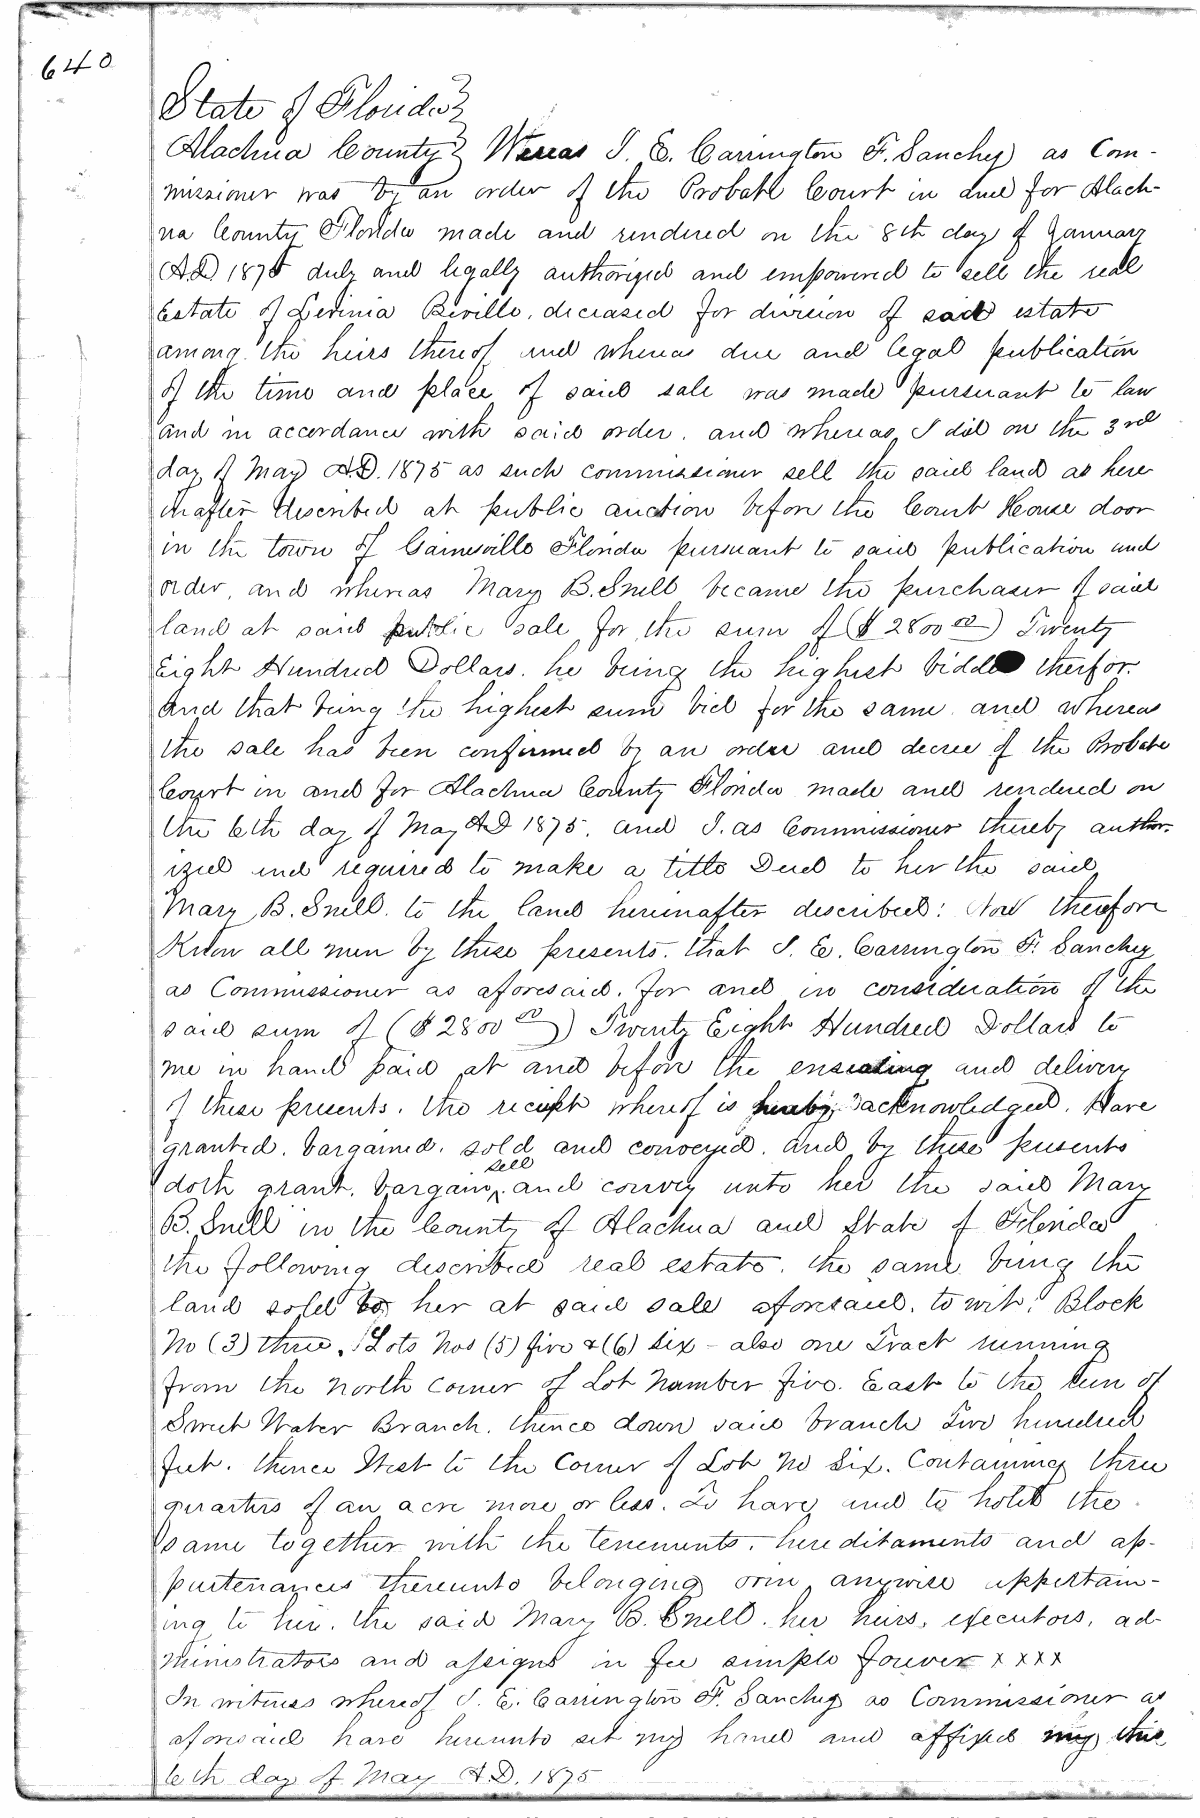 640
State of Florida }
Alachua County } Wereas I. E. Carrington F. Sanchez as Com-
missioner was by an order of the Probate Court in and for Alach-
ua County Florida made and rendered on the 8th day of January
A.D 1875 duly and legally authorized and empowered to sell the real
Estate of Levinia Beville, deceased for division of said estate
among the heirs thereof and whereas due and legal publication
of the time and place of said sale was made pursuant to law
and in accordance with said order. and whereas I did on the 3rd
day of May A.D. 1875 as such commissioner sell the said land as here
inafter described at public auction before the Court House door
in the town of Gainesville Florida pursuant to said publication and
order, and whereas Mary B. Snell became the purchaser of said
land at said public sale for the sum of ($2800 00) Twenty
Eight Hundred Dollars. he being the highest bidder therfor.
And that being the highest sum bid for the same. and whereas
the sale has been confirmed by an order and decree of the Probate
Court in and for Alachua County Florida made and rendered on
the 6th day of May A.D 1875. and I. as Commissioner thereby author-
ized and required to make a title Deed to her the said
Mary B. Snell. to the land hereinafter described: Now therefore
Know all men by these presents. that I. E. Carrington F. Sanchez
as Commissioner as aforesaid. for and in consideration of the
said sum of ($2800 00) Twenty Eight Hundred Dollars to
me in hand paid at and before the ensealing and delivery
of these presents. the reciept whereof is hereby acknowledged. Have
granted. bargained. sold and conveyed. and by these presents
doth grant. bargain, sell and convey unto her the said Mary
B. Snell in the County of Alachua and State of Florida
the following described real estate. the same being the
land sold to her at said sale aforesaid. to wit: Block
No (3) three. Lots Nos (5) five & (6) six - also one Tract running
from the north corner of Lot Number five. East to the run of
Sweet Water Branch. thence down said branch Two hundred
feet. thence West to the Corner of Lot No Six. Containing three
quarters of an acre more or less. To have and to hold the
same together with the tenements. hereditaments and ap-
purtenances thereunto belonging or in anywise appertain-
ing to her. the said Mary B. Snell. her heirs, executors, ad-
ministrators and assigns in fee simple forever x x x x
In witness whereof I. E. Carrington F. Sanchez as Commissioner as
aforesaid have hereunto set my hand and affixed my this
6th day of May A.D. 1875